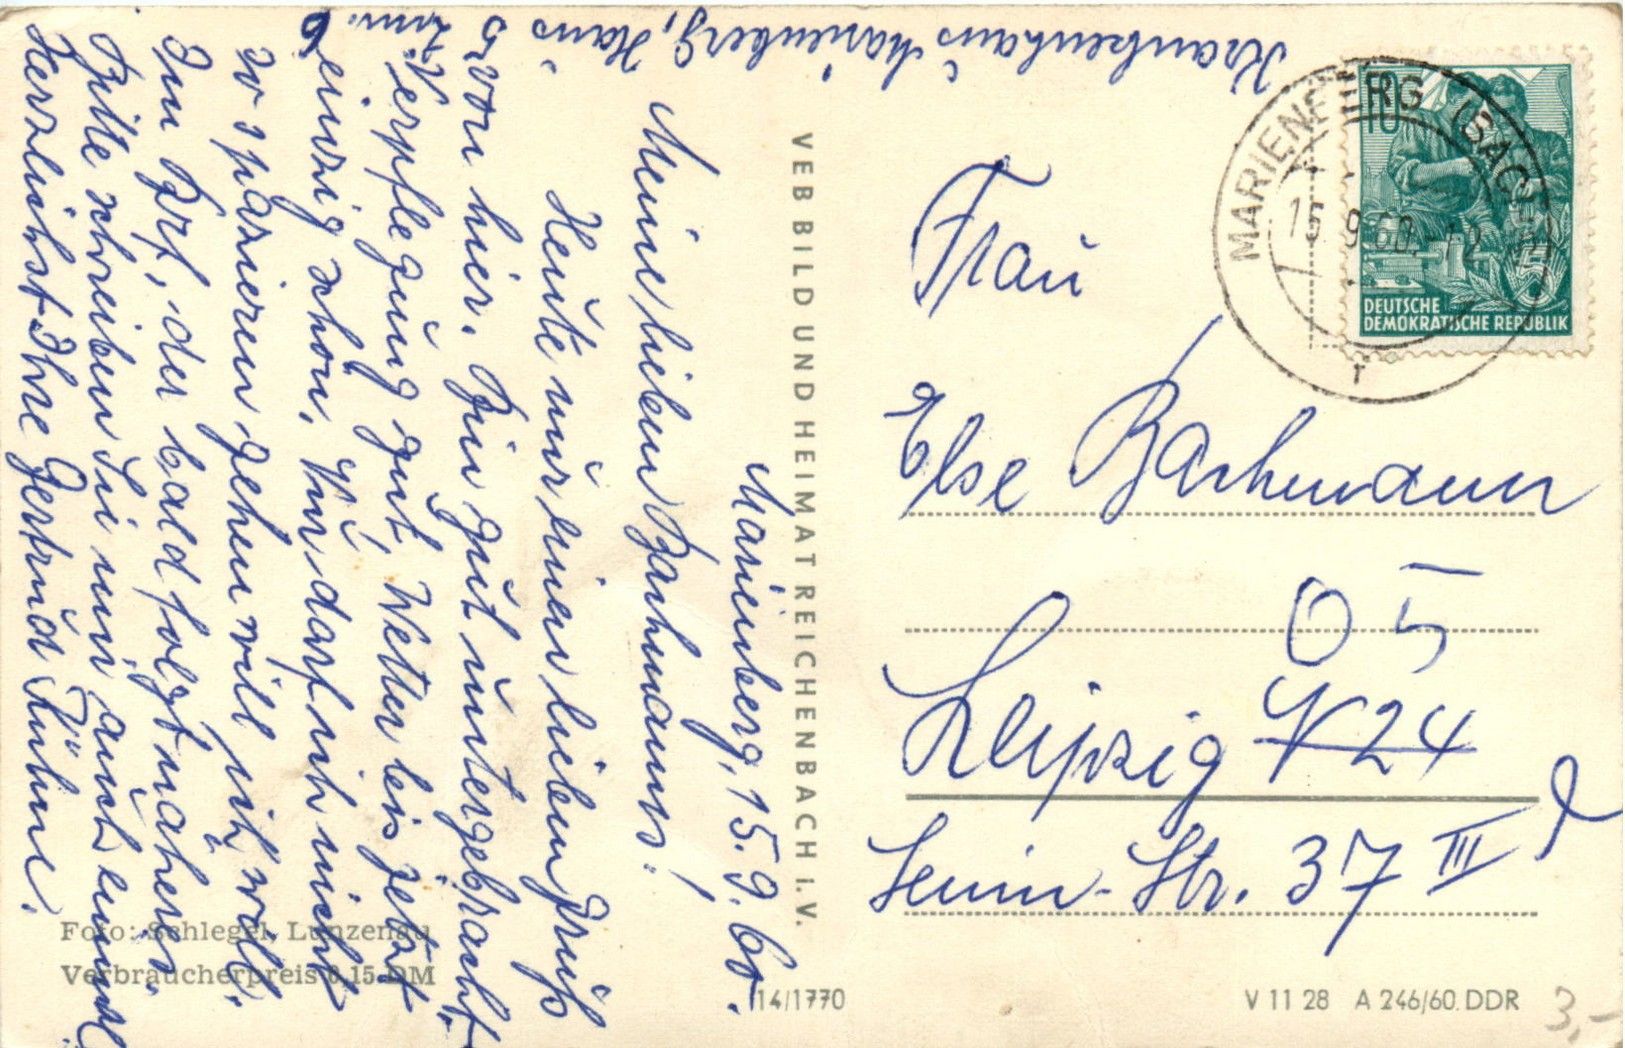 Krankenhaus Marienberg, Haus 5
Zim. 6
Marienberg, 15. 9. 60.
Meine lieben Bachmanns!
Heute nur einen lieben Gruß
von hier. Bin gut untergebracht.
Verpflegung gut, Wetter bis jetzt
einzig schön. Nun darf ich nicht
so spazieren gehen will ich woll.
Im Brf., der bald folgt näheres.
Bitte schreiben Sie mir auch einmal
Herzlichst Ihre Gertrud Kühne.
VEB BILD UND HEIMAT REICHENBACH I. V.
MARIENBERG (SACHS)
15. 9. 60. -12
r
10
5
DEUTSCHE
DEMOKRATISCHE REPUBLIK
Frau
Else Bachmann
O 5
Leipzig N 24
Lenin-Str. 37 III
Foto: Schlegel, Lunzenau
Verbraucherpreis 0,15 DM
14/1770
V 11 28 A 246/60. DDR
3,-